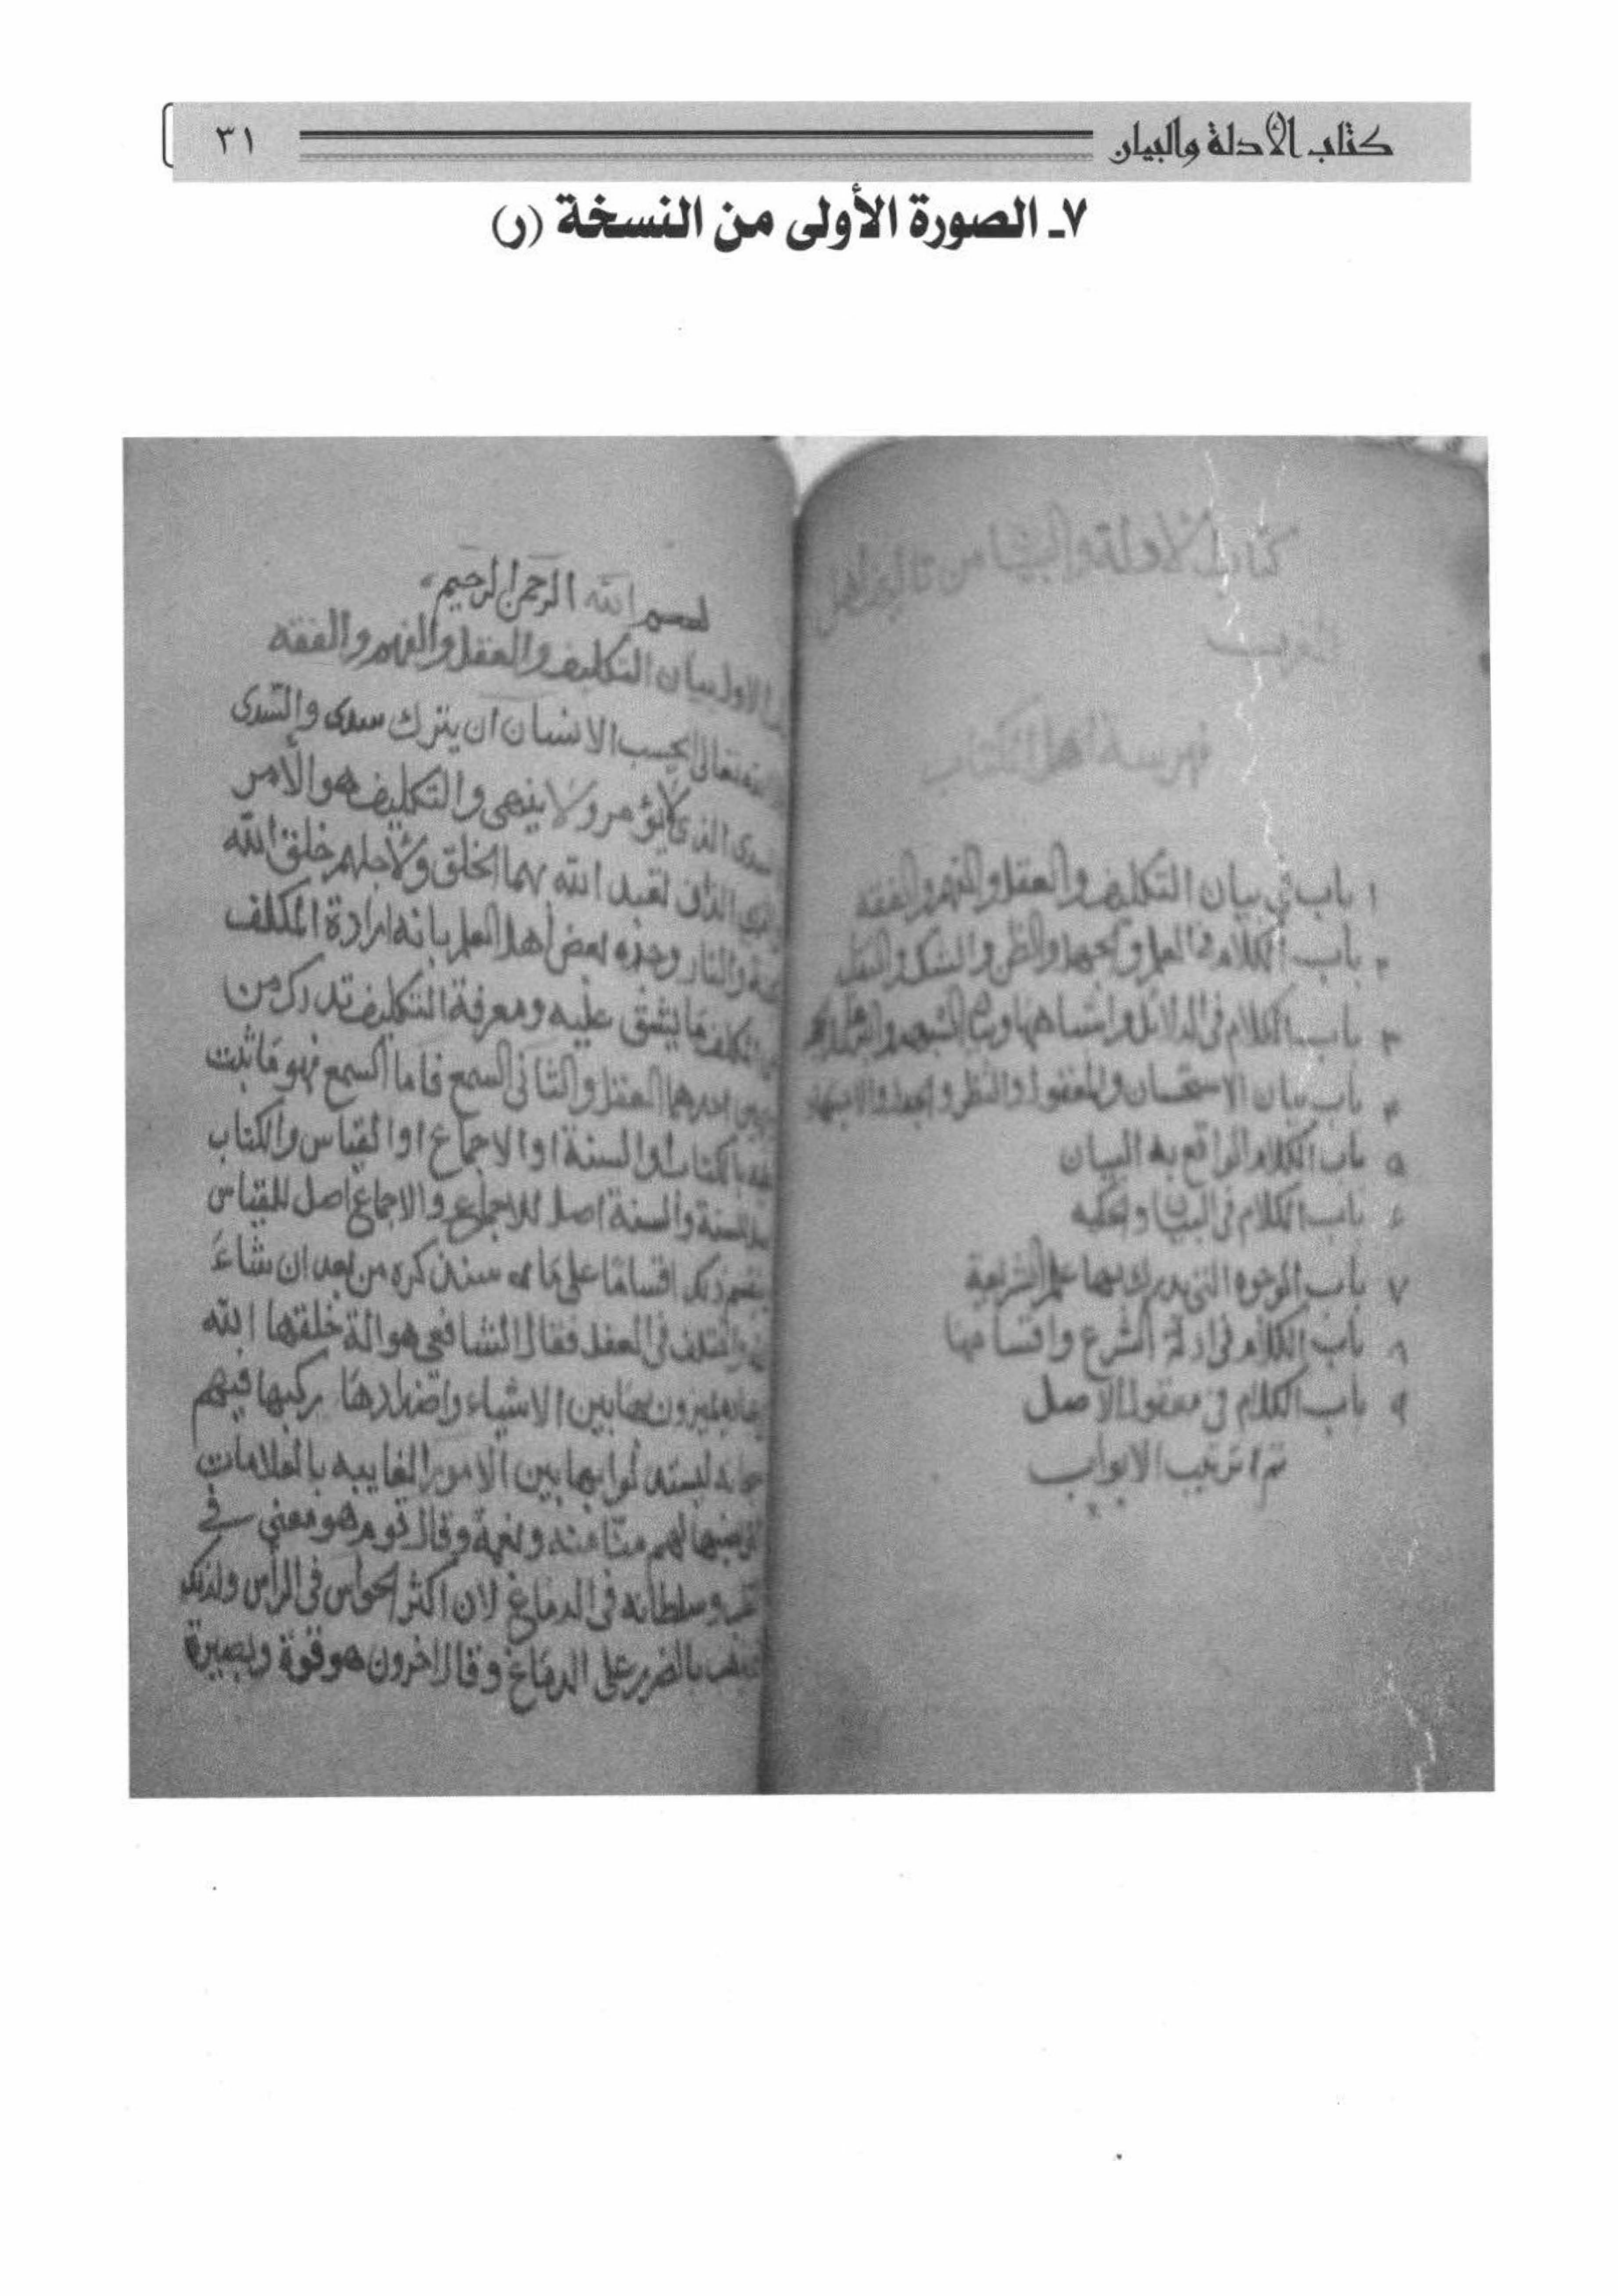 كتاب الأدلة والبيان
٣١
٧ـ الصورة الأولى من النسخة (ر)
كتاب الادلة والبيان من تاليف اهل
المغرب
فهرسة اهل الكتاب
١ باب في بيان التكليف والعقل والفهم والفقه
٢ باب الكلام في العلم والجهل والظن والشك
٣ باب الكلام في الدلائل
٤ باب بيان الاستحسان والمعقول والنظر والجدل
٥ باب الكلام الواقع به البيان
باب الكلام في البيان
٧ باب الوجوه التي يدرك بها علم الشريعة
٨ باب الكلام في ادلة الشرع واقسامها
٩ باب الكلام في معقول الاصل
تم ترتيب الابواب
بسم الله الرحمن الرحيم
الاول بيان التكليف والعقل والفهم والفقه
تعالى ايحسب الانسان ان يترك سدى والسدى
الذي لا يؤمر ولا ينهى والتكليف هو الأمر
تعبد الله بهما الخلق ولأجلهم خلق الله
والنار وحده بعض أهل العلم بانه ارادة المكلف
ما يشق عليه ومعرفة التكليف تدرك من
احدهما العقل والثاني السمع فاما السمع فهو ما ثبت
بالكتاب أو السنة او الاجماع او القياس والكتاب
والسنة اصل للاجماع والاجماع اصل للقياس
ذلك اقساما على ما سنذكره من بعد ان شاء
في العقل فقال الشافعي هو الة خلقها الله
يميزون بها بين الاشياء واضدادها ركبها فيهم
ليستدلوا بها بين الامور الغايبه بالعلامات
لهم منا منه ونعمة وقال قوم هو معنى في
القلب وسلطانه في الدماغ لان اكثر الحواس في الرأس ولذلك
بالضرر على الدماغ وقال اخرون هو قوة وبصيرة